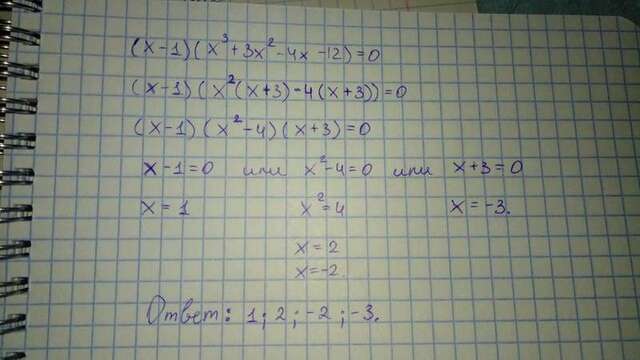 (x-1)(x³+3x²-4x-12)=0
(x-1)(x²(x+3)-4(x+3))=0
(x-1)(x²-4)(x+3)=0
x-1=0 или x²-4=0 или x+3=0
x=1 x²=4 x=-3.
x=2
x=-2.
Ответ: 1; 2; -2; -3.